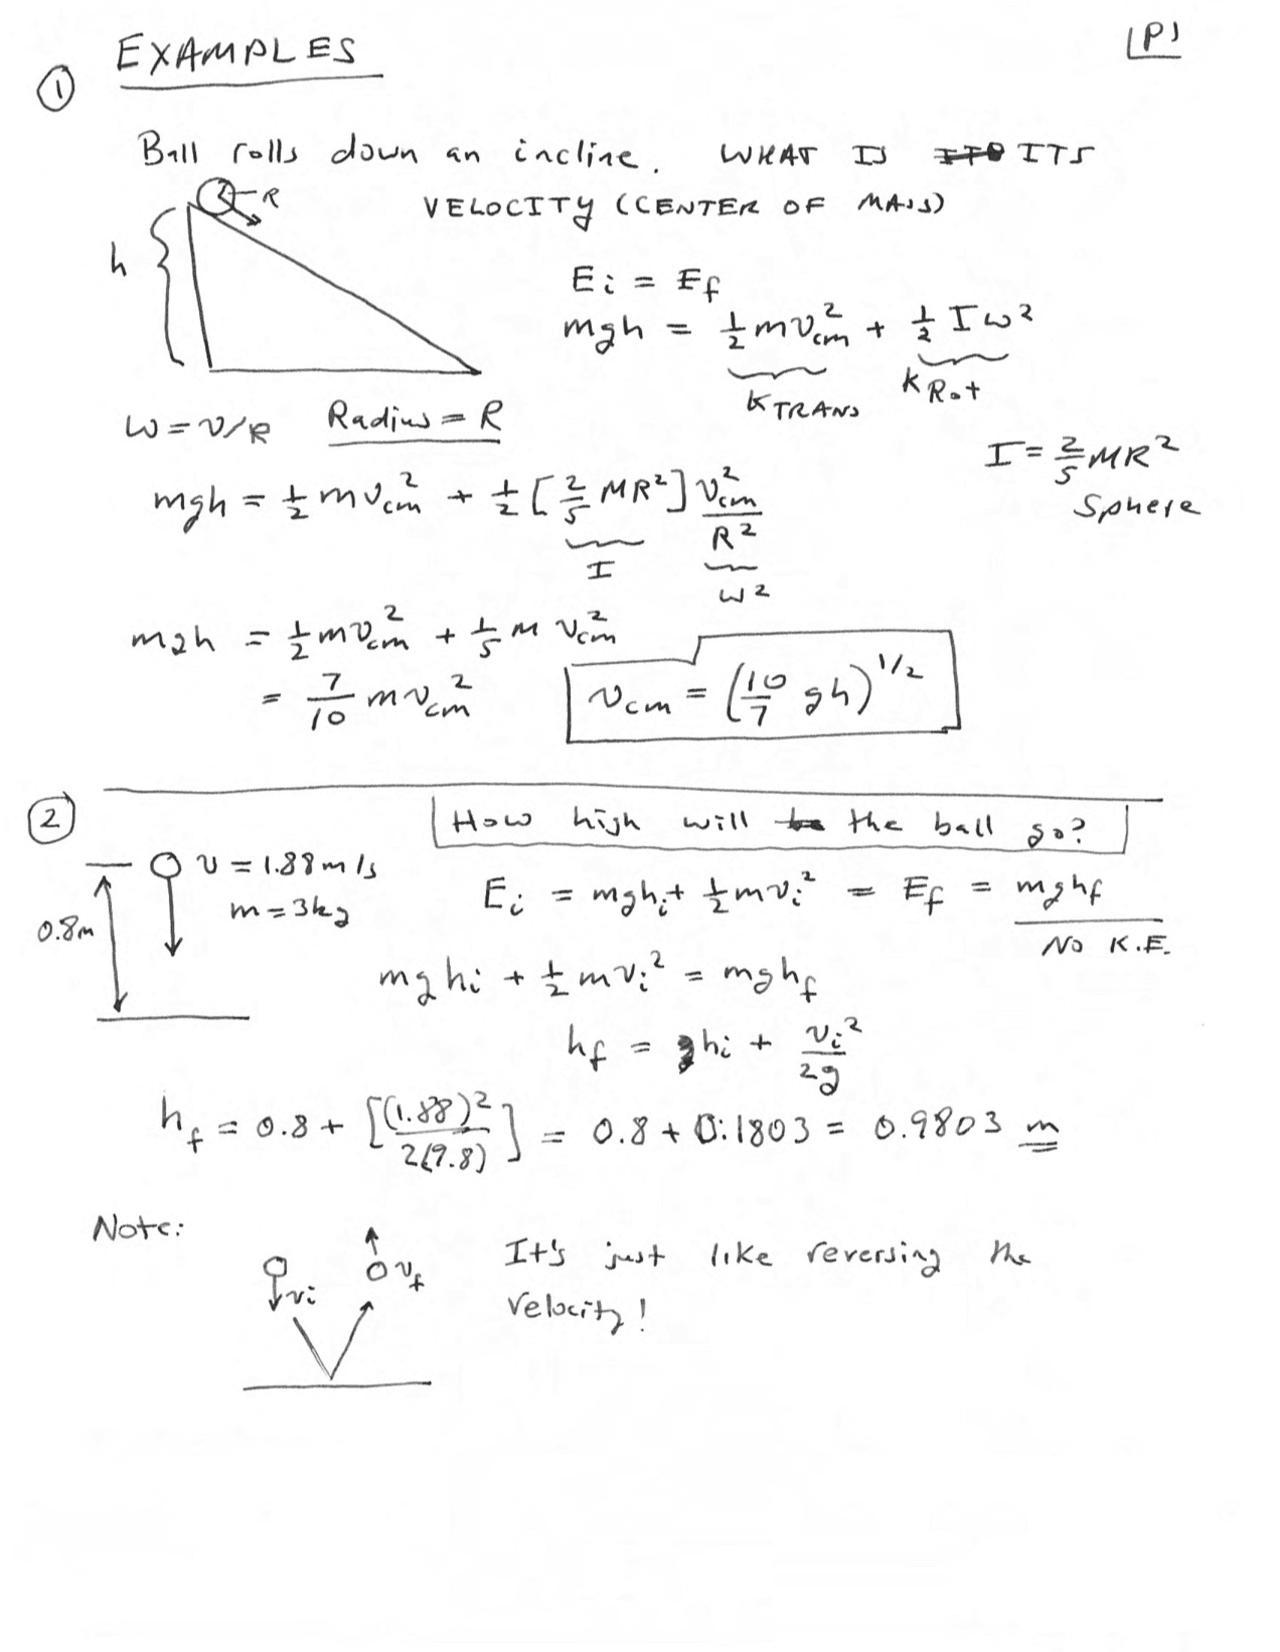 EXAMPLES
P1
①
Ball rolls down an incline. WHAT IS ITS
VELOCITY (CENTER OF MASS)
R
h
Ei = Ef
mgh = ½ m v²cm + ½ I ω²
K TRANS
K Rot
ω = v/R Radius = R
I = 2/5 MR²
Sphere
mgh = ½ m v²cm + ½ [2/5 MR²] v²cm / R²
I
ω²
mgh = ½ m v²cm + 1/5 m v²cm
= 7/10 m v²cm
vcm = (10/7 gh)^1/2
②
How high will the ball go?
v = 1.88 m/s
m = 3kg
0.8m
Ei = mghi + ½ m vi² = Ef = mghf
NO K.E.
mghi + ½ m vi² = mghf
hf = hi + vi²/2g
hf = 0.8 + [(1.88)²/2(9.8)] = 0.8 + 0.1803 = 0.9803 m
Note:
vi
vf
It's just like reversing the
velocity!